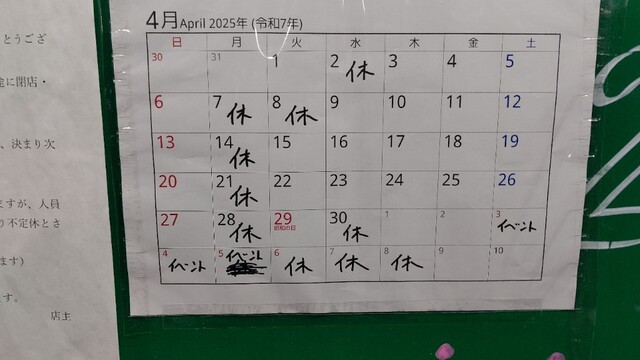 4月April 2025年 (令和7年)
日 月 火 水 木 金 土
30 31 1 2 休 3 4 5
6 7 休 8 休 9 10 11 12
13 14 休 15 16 17 18 19
20 21 休 22 23 24 25 26
27 28 休 29 昭和の日 30 休 1 2 3 イベント
4 イベント 5 イベント 6 休 7 休 8 休 9 10
とうござ
に閉店・
、決まり次
ますが、人員
り不定休とさ
ます)
す。
店主